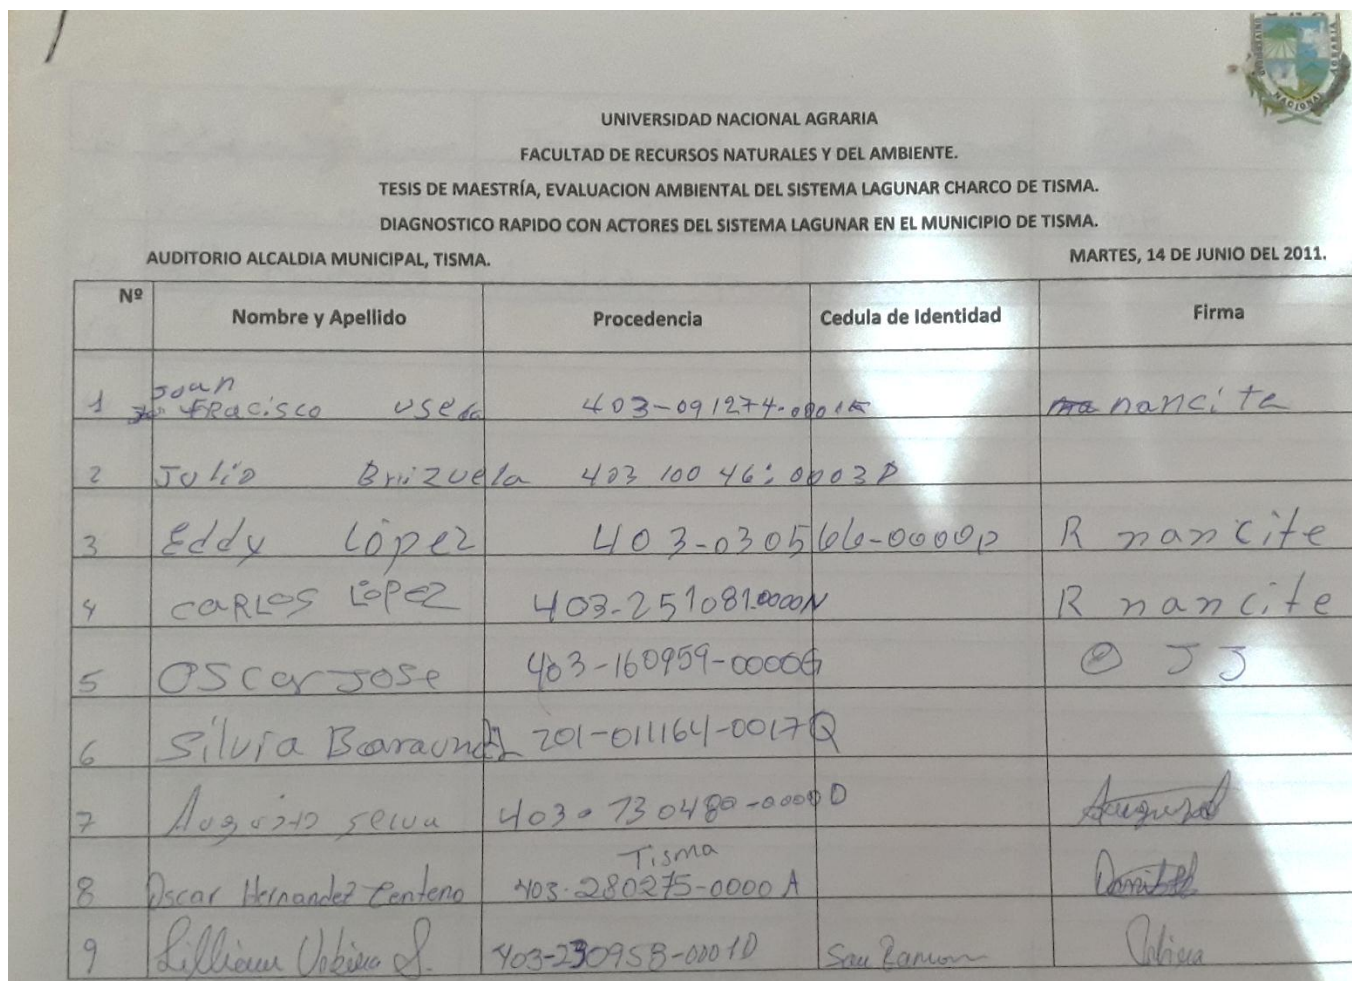 UNIVERSIDAD NACIONAL AGRARIA
UNIVERSIDAD NACIONAL AGRARIA
FACULTAD DE RECURSOS NATURALES Y DEL AMBIENTE.
TESIS DE MAESTRÍA, EVALUACION AMBIENTAL DEL SISTEMA LAGUNAR CHARCO DE TISMA.
DIAGNOSTICO RAPIDO CON ACTORES DEL SISTEMA LAGUNAR EN EL MUNICIPIO DE TISMA.
AUDITORIO ALCALDIA MUNICIPAL, TISMA. MARTES, 14 DE JUNIO DEL 2011.
Nº Nombre y Apellido Procedencia Cedula de Identidad Firma
Juan
1 FRAcisco useda 403-091274- nancite
2 Julio Brizuela 403 100 46: 0003D
3 Eddy López 403-030566-0000P R nancite
4 CARLOS LOPEZ 403-251081-0000N R nancite
5 OSCar JOSe 403-160959-0000G O J J
6 Silvia 201-011164-0017Q
7 403-130480-0000D
Tisma
8 Oscar Hernandez Centeno 403-280275-0000A
9 Lilliam S. 403-230958-0001D San Ramon